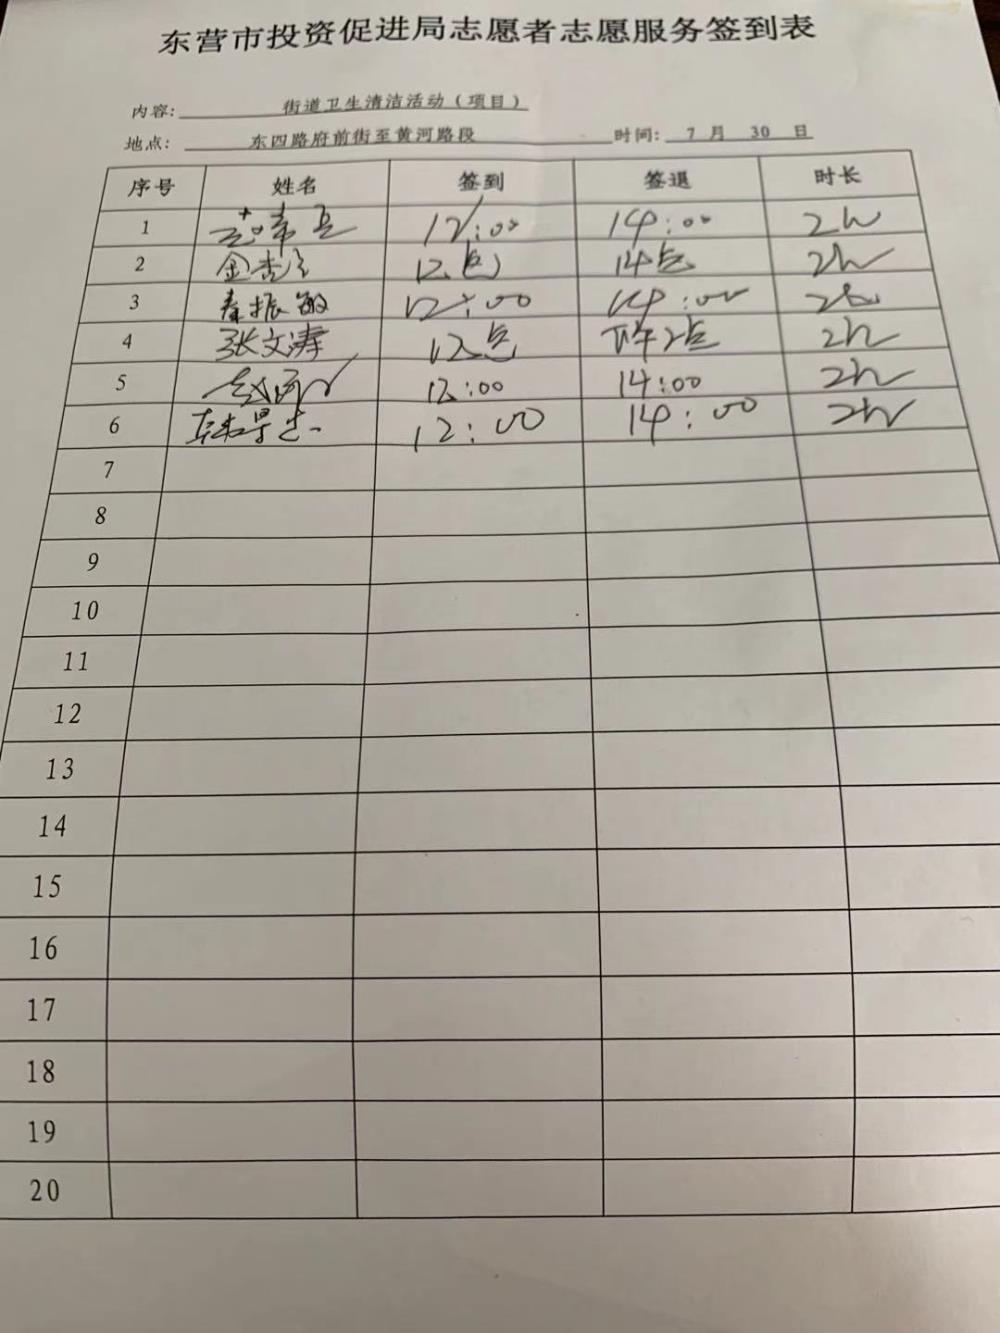 东营市投资促进局志愿者志愿服务签到表
内容: 街道卫生清洁活动（项目）
地点: 东四路府前街至黄河路段 时间: 7 月 30 日
序号 姓名 签到 签退 时长
1 12:00 14:00 2h
2 12点 14点 2h
3 秦振敏 12:00 14:00 2h
4 张文涛 12点 下午2点 2h
5 12:00 14:00 2h
6 12:00 14:00 2h
7
8
9
10
11
12
13
14
15
16
17
18
19
20